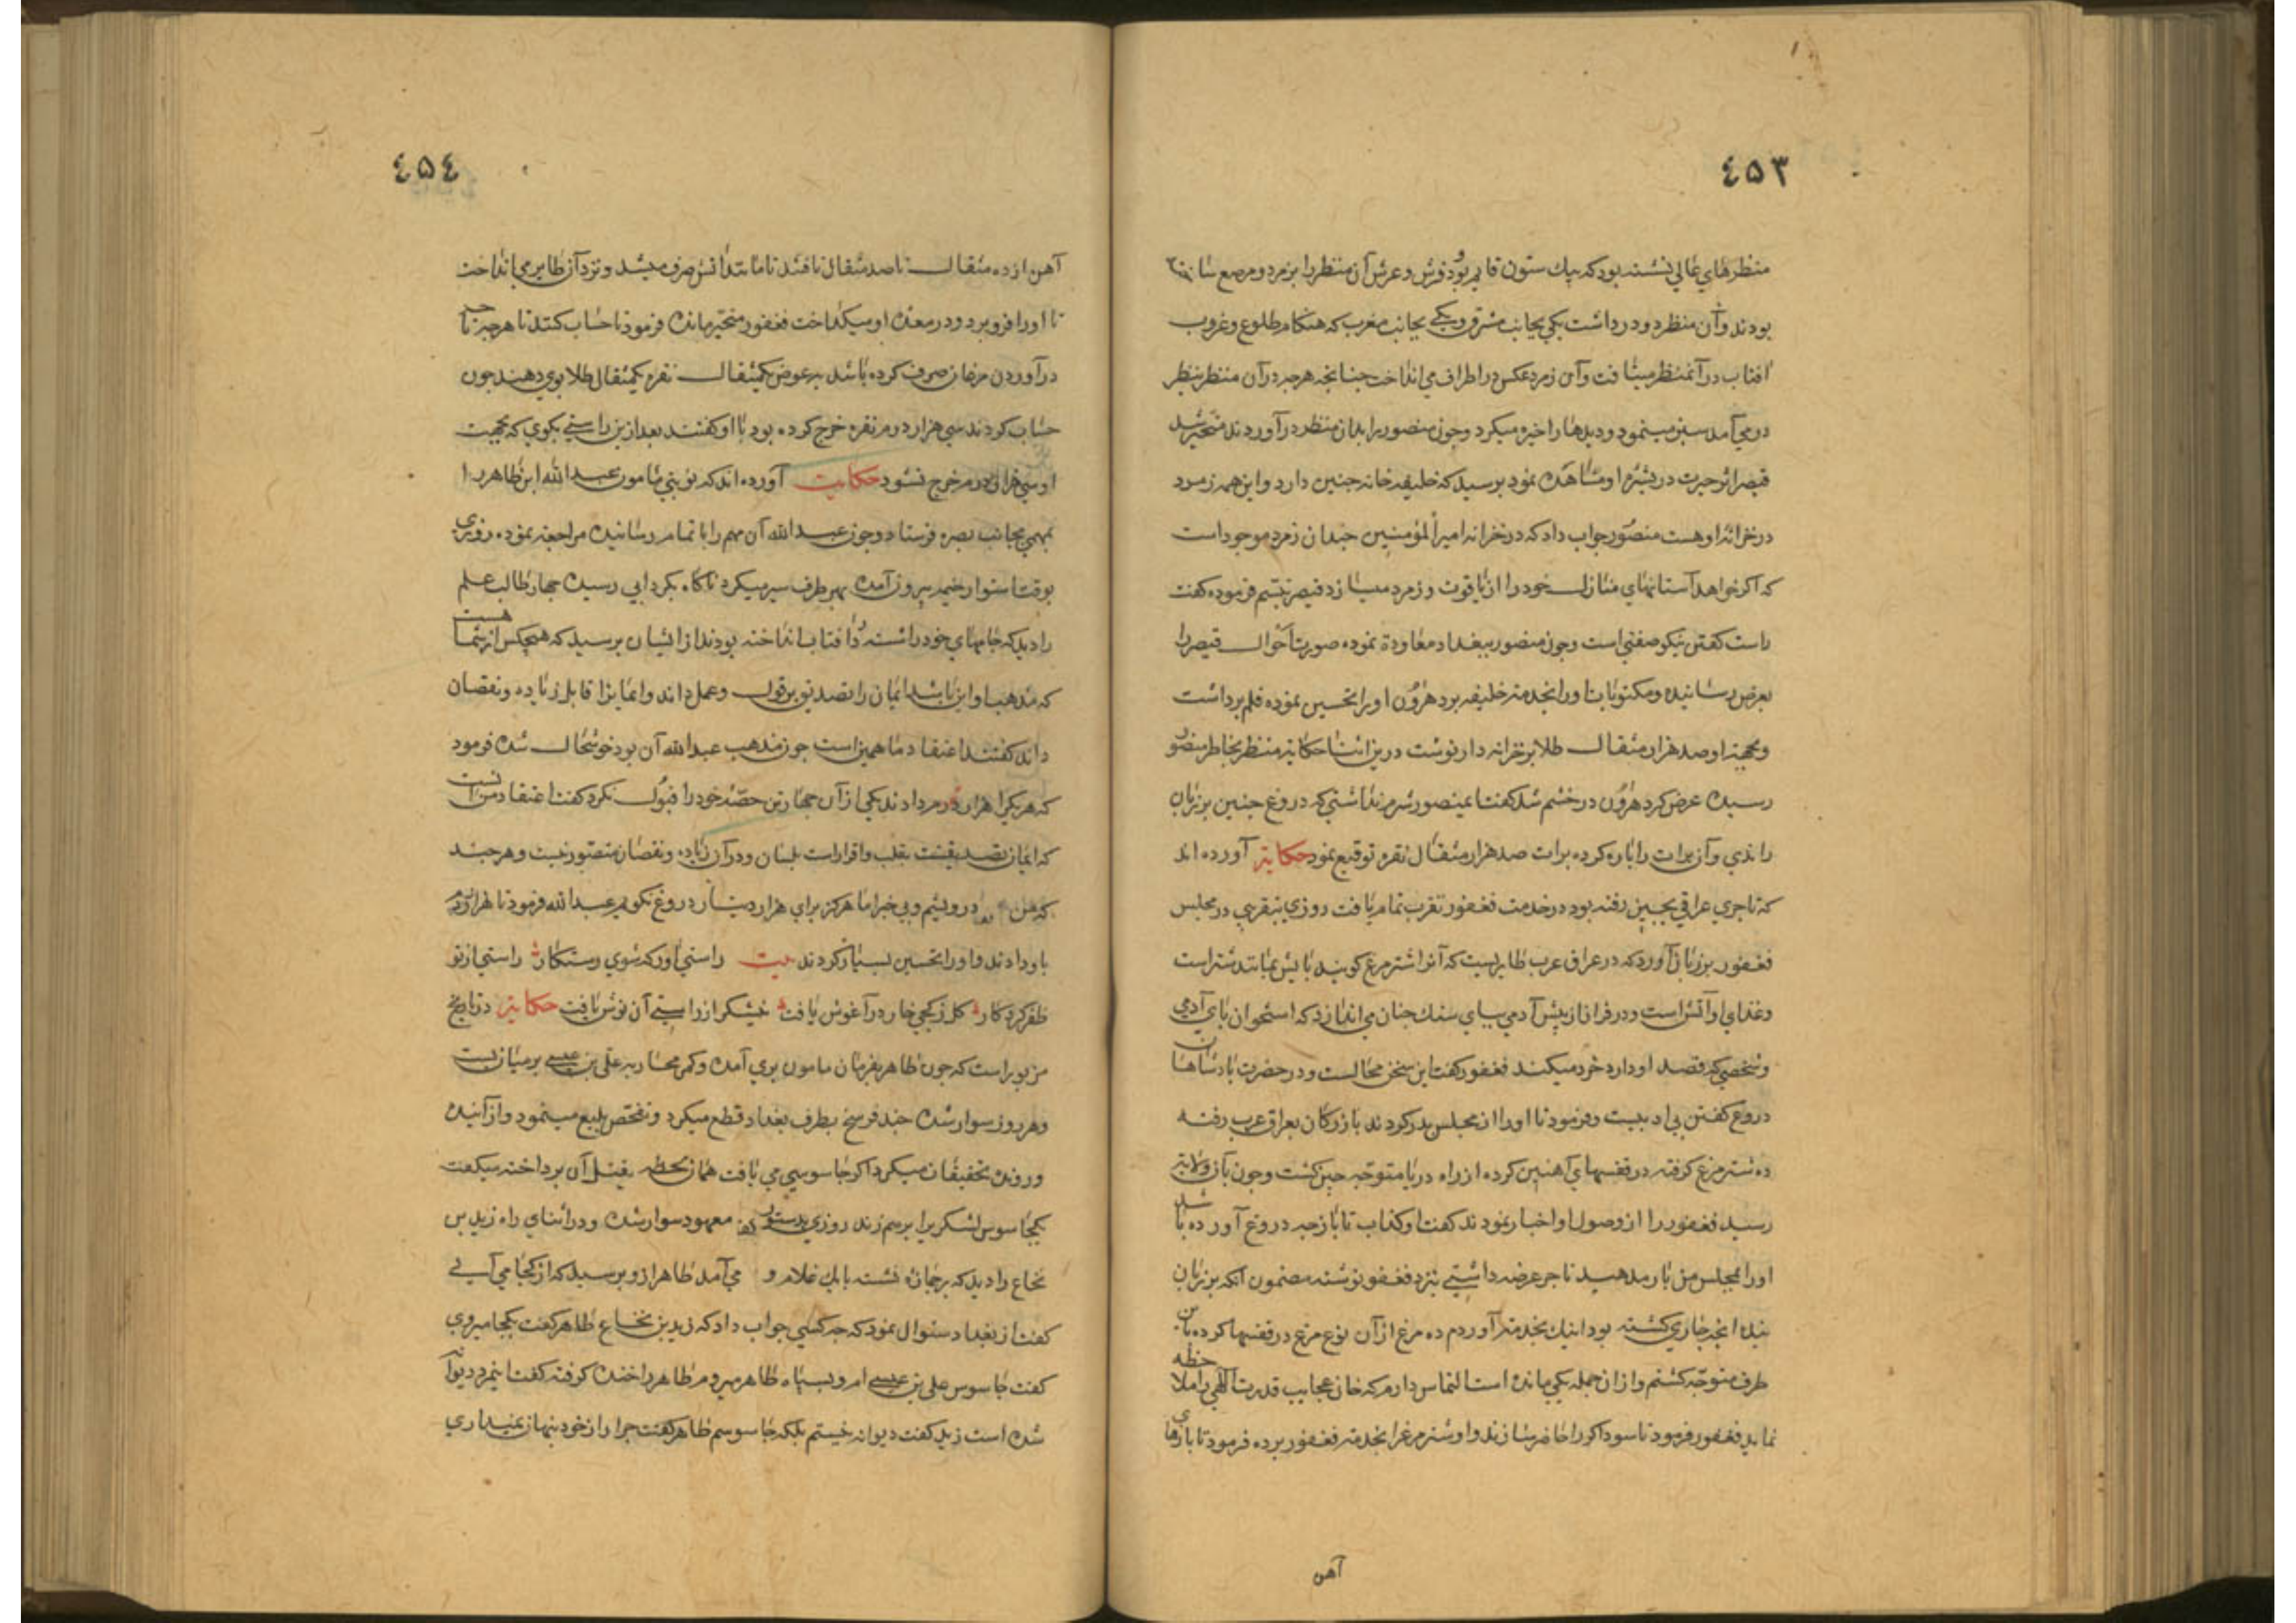 ٤٥٣
منظرهای عالی نشسته بود که بیك ستون قایم بود و فرش و عرش آن منظر را بزمرد مرصع ساخته
بودند و آن منظر دو در داشت یکی بجانب مشرق و یکی بجانب مغرب که هنکام طلوع و غروب
افتاب در آنمنظر میتافت و آن زمرد عکس در اطراف می انداخت چنانچه هرچه در آن منظر بنظر
در می آمد سبز مینمود و دیدها را خیره میکرد و چون منصور را بدان منظر در آوردند متحیر شد
قیصر اثر حیرت در بشره او مشاهده نمود پرسید که خلیفه خانه چنین دارد و این همه زمرد
در خزانه او هست منصور جواب داد که در خزانه امیر المؤمنین چندان زمرد موجود است
که اکر خواهد آستانهای منازل خود را از یاقوت و زمرد میسازد قیصر تبسم فرموده کفت
راست کفتن نیکو صفتی است و چون منصور ببغداد معاودة نموده صورت احوال قیصر را
بعرض رسانیده و مکتوبات او را بخدمت خلیفه برد هرون او را تحسین نموده قلم برداشت
و بجهة او صد هزار مثقال طلا بر خزانه دار نوشت درین اثنا حکایة منظر بخاطر منصور
رسیده عرض کرد هرون در خشم شد کفت ایمنصور شرم نداشتی که دروغ چنین بر زبان
راندی و آن برات را پاره کرده برات صد هزار مثقال نقره توقیع نمود حکایة آورده اند
که تاجری عراقی بچین رفته بود در خدمت فغفور تقرب تمام یافت روزی بتقریبی در مجلس
فغفور بر زبان آورد که در عراق عرب طایریست که آنرا شتر مرغ کویند پایش بمانند شتر است
و غذای او آتش است و در فرار از پیش آدمی بپای سنك چنان می اندازد که استخوان پای آدمی
و شخصی که قصد او دارد خرد میکند فغفور کفت این سخن محالست و در حضرت پادشاهان
دروغ کفتن بی ادبیست و فرمود تا او را از مجلس بدر کردند بازرکان بعراق عرب رفته
ده شتر مرغ کرفته در قفسهای آهنین کرده از راه دریا متوجه چین کشت و چون بآن ولایة
رسید فغفور را از وصول او اخبار نمودند کفت او کذاب تا باز چه دروغ آورده باشد
او را بمجلس من بار مدهید تاجر عرضه داشتی نزد فغفور نوشته مضمون آنکه بر زبان
بنده انچه جاری کشته بود اینك بخدمت آوردم ده مرغ از آن نوع مرغ در قفسها کرده باین
طرف متوجه کشتم و از ان جمله یکی مانده است التماس دارم که خان عجایب قدرت الهی را ملاحظه
نماید فغفور فرمود تا سوداکر را حاضر سازند و او شتر مرغ را بخدمت فغفور برده فرمود تا پارهای
آهن
٤٥٤
آهن از ده مثقال تا صد مثقال تافتند تا مانند آتش صرف میشد و نزد آن طایر می انداخت
تا او را فرو برد و در معده او میکداخت فغفور متحیر مانده فرمود تا حساب کنند تا هرچه تاجر
در آوردن مرغان صرف کرده باشد بعوض یکمثقال نقره یکمثقال طلا بوی دهند چون
حساب کردند سی هزار درم نقره خرج کرده بود با او کفتند بعد ازین راستی بکوی که بجهت
او سی هزار درم خرج نشود حکایت آورده اند که نوبتی مامون عبد الله ابن طاهر را
بمهمی بجانب بصره فرستاد و چون عبد الله آن مهم را باتمام رسانیده مراجعة نمود روزی
بوقت استوا از خیمه بیرون آمده بهر طرف سیر میکرد ناکاه بکردابی رسیده چهار طالب علم
را دید که جامهای خود را شسته در آفتاب انداخته بودند از ایشان پرسید که هیچکس از شما هست
که مذهب او این باشد ایمان را تصدیق بر قول و عمل داند و ایمانرا قابل زیاده و نقصان
داند کفتند اعتقاد ما همین است چون مذهب عبد الله آن بود خوشحال شده فرمود
که هر یك را هزار درم دادند یکی از آن چهار تن حصّه خود را قبول نکرد کفت اعتقاد من آنست
که ایمان تصدیقست بقلب و اقرار است بلسان و در آن زیاده و نقصان متصور نیست و هر چند
که من درویشم و بی خبر اما هرکز برای هزار دینار دروغ نکویم عبد الله فرمود تا هزار درم
باو دادند و او را تحسین بسیار کردند بیت راستی آور که شوی رستکار راستی از تو
ظفر کردکار کل ز کجی خار در آغوش یافت نیشکر از راستی آن نوش یافت حکایة در تاریخ
مزبور است که چون طاهر بفرمان مامون بری آمده و کمر محاربه علی بن عیسی بر میان بست
و هر روز سوار شده چند فرسخ بطرف بغداد قطع میکرد و تفحص بلیغ مینمود و از آینده
و رونده تحقیقات میکرد اکر جاسوسی می یافت همان لحظه بقتل آن پرداخته میکفت
یکجاسوس لشکری را برهم زند روزی بدستور معهود سوار شده و در اثنای راه زید بن
نخاع را دید که بر چهار نشسته با یك غلام و می آمد طاهر از و پرسید که از کجا می آیی
کفت از بغداد سئوال نمود که چه کسی جواب داد که زید بن نخاع طاهر کفت بکجا میروی
کفت جاسوس علی بن عیسی ام و بسپاه طاهر میروم طاهر را خنده کرفته کفت اینمرد دیوانه
شده است زید کفت دیوانه نیستم بلکه جاسوسم طاهر کفت چرا راز خود پنهان نمیداری